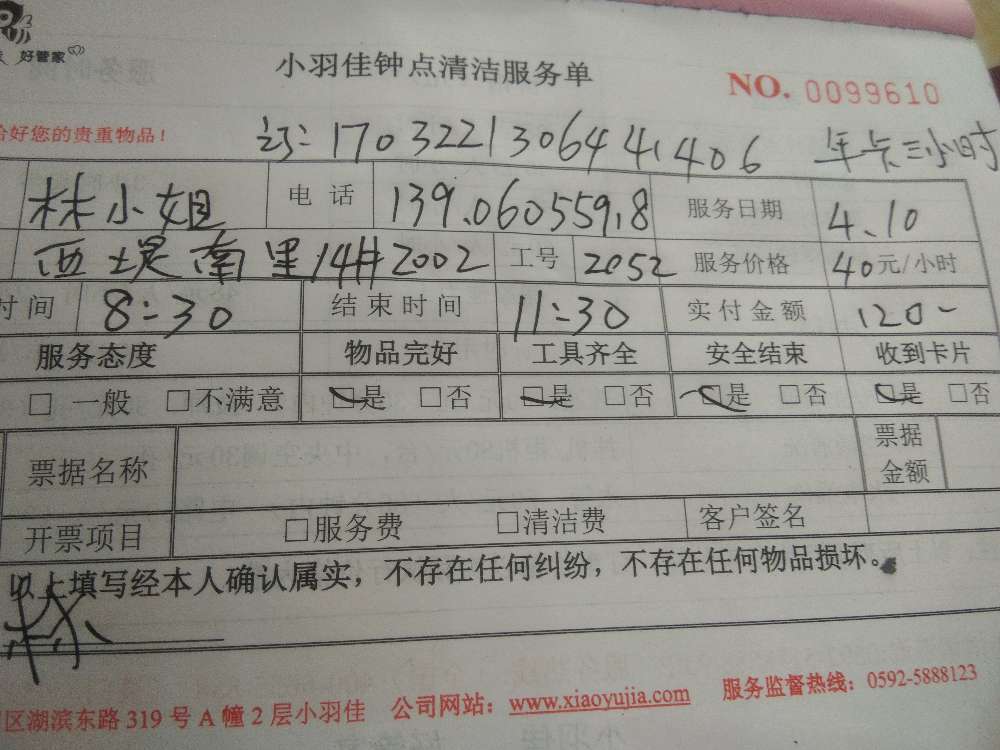 好管家
小羽佳钟点清洁服务单
NO. 0099610
好您的贵重物品！
1703221306441406 年卡三小时
林小姐 电话 139.06055918 服务日期 4.10
西堤南里14#2002 工号 2052 服务价格 40元/小时
时间 8:30 结束时间 11:30 实付金额 120-
服务态度 物品完好 工具齐全 安全结束 收到卡片
□ 一般 □不满意 □是 □否 □是 □否 □是 □否 □是 □否
票据名称 票据金额
开票项目 □服务费 □清洁费 客户签名
以上填写经本人确认属实，不存在任何纠纷，不存在任何物品损坏。
林
区湖滨东路 319 号 A 幢 2 层小羽佳 公司网站：www.xiaoyujia.com 服务监督热线：0592-5888123